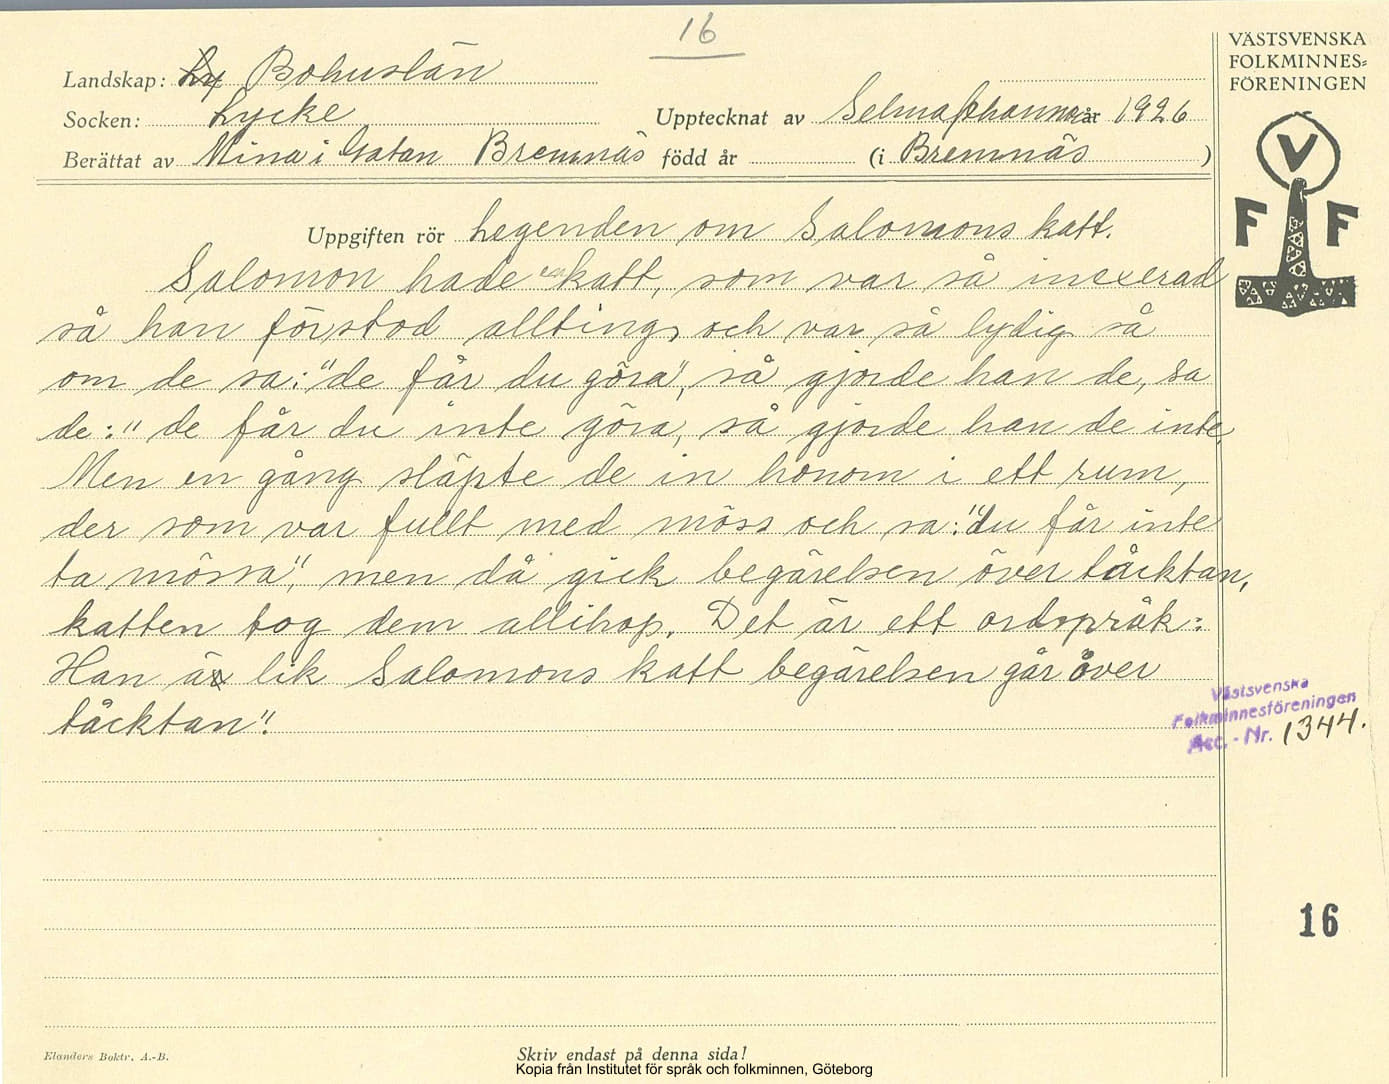 16
VÄSTSVENSKA
FOLKMINNES=
FÖRENINGEN
Landskap: Ly Bohuslän
Socken: Lycke
Upptecknat av Selma Johannson år 1926
Berättat av Mina i Gatan Bremnäs född år (i Bremnäs )
V
F F
Uppgiften rör Legenden om Salomons katt.
Salomon hade en katt, som var så inexerad
så han förstod allting, och var så lydig så
om de sa: "de får du göra", så gjorde han de, sa
de: " de får du inte göra, så gjorde han de inte,
Men en gång släpte de in honom i ett rum,
der som var fullt med möss och sa: "du får inte
ta mössa", men då gick begärelsen över tåcktan,
katten tog dem allihop. Det är ett ordspråk:
Han är lik Salomons katt begärelsen går över
tåcktan".
Västsvenska
Folkminnesföreningen
Acc. - Nr. 1344.
16
Elanders Boktr. A.-B.
Skriv endast på denna sida!
Kopia från Institutet för språk och folkminnen, Göteborg